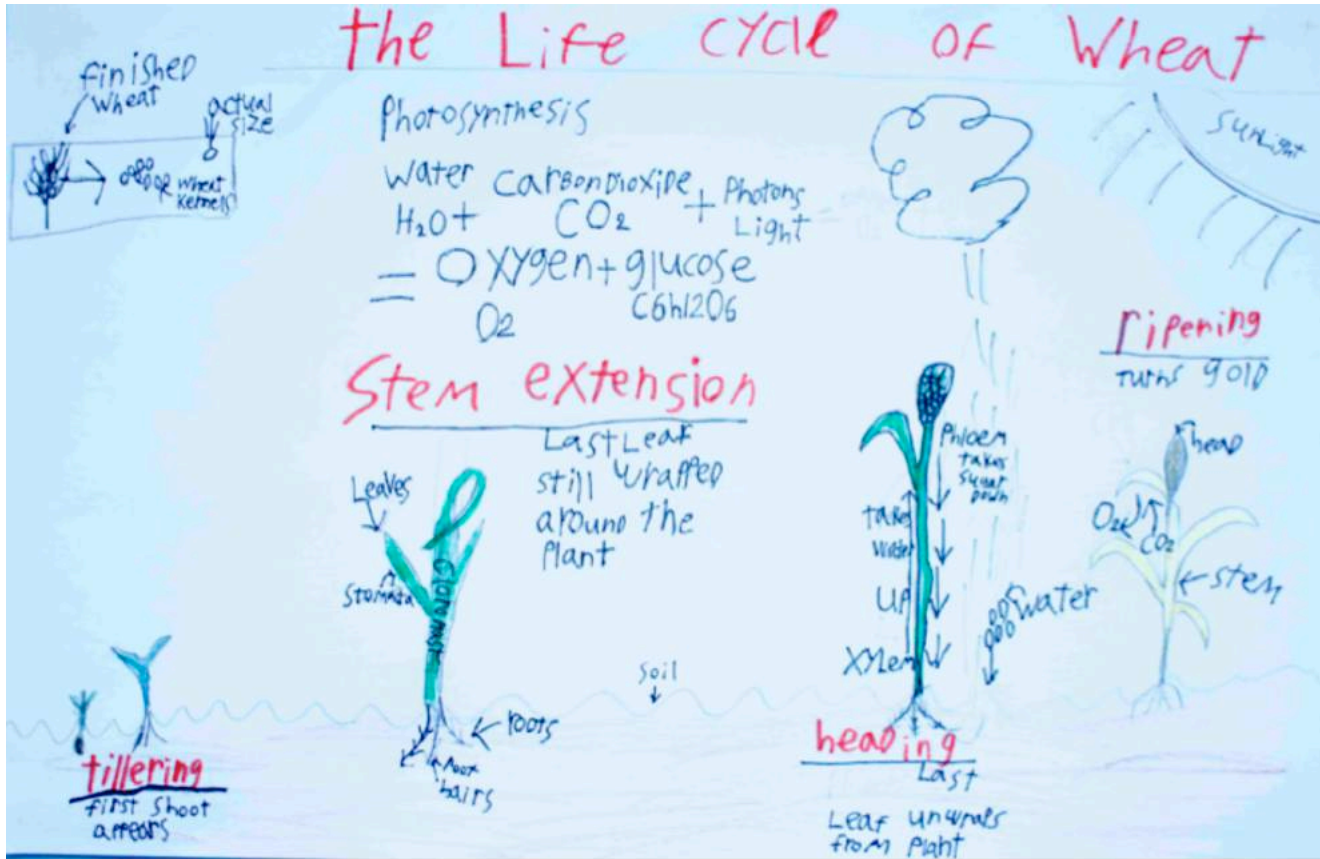 the Life cycle of Wheat
finished
wheat
actual
size
wheat
kernels
Photosynthesis
Water Carbon Dioxide + Photons
H2O+ CO2 Light
= Oxygen + glucose
O2 C6h12O6
Sunlight
Stem extension
Last Leaf
still wrapped
around the
Plant
Leaves
Stomata
roots
root
hairs
Soil
tillering
first shoot
appears
Phloem
takes
sugar
down
takes
water
up
XYLem
water
heading
Last
Leaf unwraps
from plant
ripening
turns gold
head
O2
CO2
stem